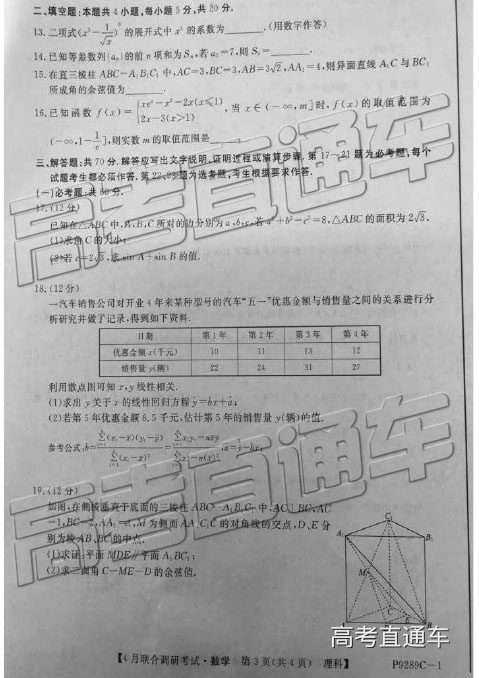 二、填空题:本题共4小题,每小题5分,共20分.
13.二项式(x³-1/√x)⁶的展开式中x⁴的系数为______.(用数字作答)
14.已知等差数列{aₙ}的前n项和为Sₙ,若a₅=7,则S₉=______.
15.在直三棱柱ABC-A₁B₁C₁中,AC=3,BC=3,AB=3√2,AA₁=4,则异面直线A₁C与BC₁
所成角的余弦值为______.
16.已知函数f(x)={xeˣ-x²-2x(x≤1), 2x-3(x>1),当x∈(-∞,m]时,f(x)的取值范围为
(-∞,1-1/e],则实数m的取值范围是______.
三、解答题:共70分.解答应写出文字说明、证明过程或演算步骤.第17~21题为必考题,每个
试题考生都必须作答.第22、23题为选考题,考生根据要求作答.
(一)必考题:共60分.
17.(12分)
已知在△ABC中,A,B,C所对的边分别为a,b,c,若a²+b²-c²=8,△ABC的面积为2√3.
(1)求角C的大小;
(2)若c=2√3,求sin A+sin B的值.
18.(12分)
一汽车销售公司对开业4年来某种型号的汽车“五一”优惠金额与销售量之间的关系进行分
析研究并做了记录,得到如下资料.
日期 第1年 第2年 第3年 第4年
优惠金额x(千元) 10 11 13 12
销售量y(辆) 22 24 31 27
利用散点图可知x,y线性相关.
(1)求出y关于x的线性回归方程ŷ=b̂x+â;
(2)若第5年优惠金额8.5千元,估计第5年的销售量y(辆)的值.
参考公式:
19.(12分)
如图,在侧棱垂直于底面的三棱柱ABC-A₁B₁C₁中,AC⊥BC,AC
=1,BC=2,AA₁= M为侧面AA₁C₁C的对角线的交点,D,E分
别为棱AB,BC的中点.
(1)求证:平面MDE∥平面A₁BC₁;
(2)求二面角C-ME-D的余弦值.
C₁
A₁
B₁
M
C
E
A
D
B
高考直通车
高考直通车
高考直通车
高考直通车
【4月联合调研考试·数学 第3页(共4页) 理科】
P9289C-1